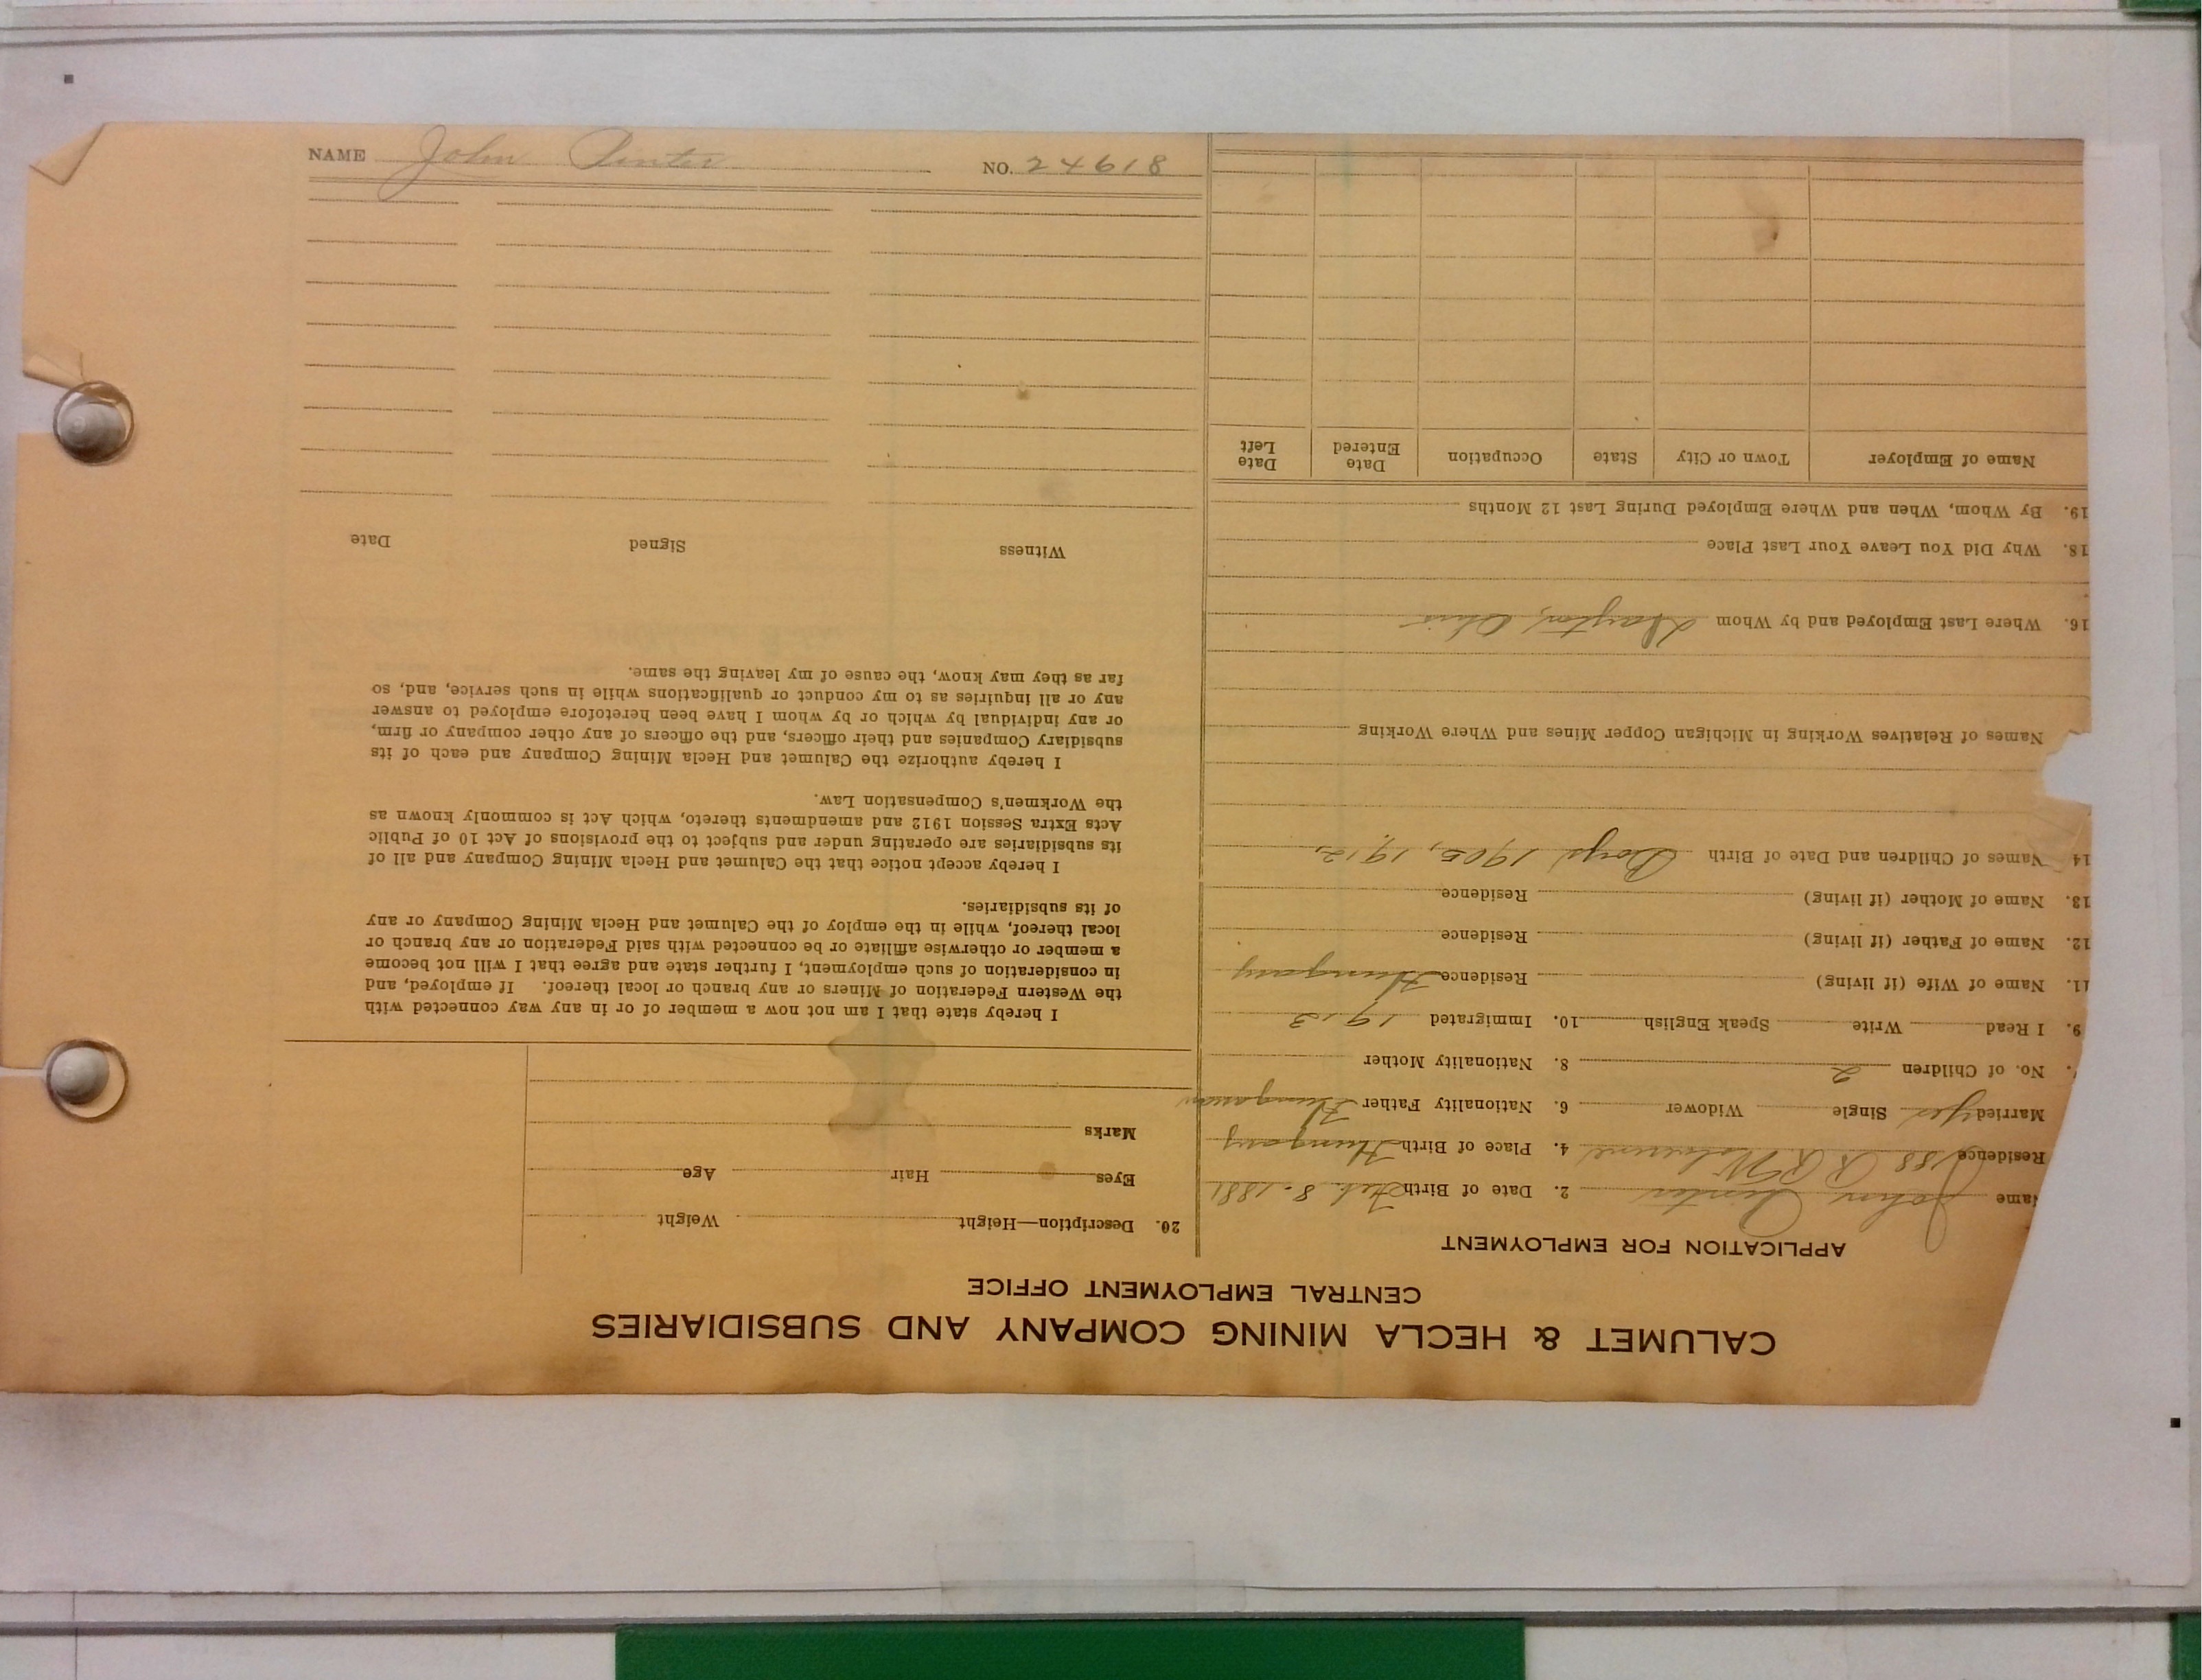 CALUMET & HECLA MINING COMPANY AND SUBSIDIARIES
CENTRAL EMPLOYMENT OFFICE
APPLICATION FOR EMPLOYMENT
Name John Pinter 2. Date of Birth Feb. 8. 1881
Residence 188 Wolverine 4. Place of Birth Hungary
Married yes Single Widower 6. Nationality Father Hungarian
No. of Children 2 8. Nationality Mother
9. I Read Write Speak English 10. Immigrated 1913
11. Name of Wife (if living) Residence Hungary
12. Name of Father (if living) Residence
13. Name of Mother (if living) Residence
14 Names of Children and Date of Birth Boys 1905, 1912,
Names of Relatives Working in Michigan Copper Mines and Where Working
16. Where Last Employed and by Whom Dayton, Ohio
18. Why Did You Leave Your Last Place
19. By Whom, When and Where Employed During Last 12 Months
Name of Employer Town or City State Occupation Date Entered Date Left
20. Description—Height Weight
Eyes Hair Age
Marks
I hereby state that I am not now a member of or in any way connected with
the Western Federation of Miners or any branch or local thereof. If employed, and
in consideration of such employment, I further state and agree that I will not become
a member or otherwise affiliate or be connected with said Federation or any branch or
local thereof, while in the employ of the Calumet and Hecla Mining Company or any
of its subsidiaries.
I hereby accept notice that the Calumet and Hecla Mining Company and all of
its subsidiaries are operating under and subject to the provisions of Act 10 of Public
Acts Extra Session 1912 and amendments thereto, which Act is commonly known as
the Workmen's Compensation Law.
I hereby authorize the Calumet and Hecla Mining Company and each of its
subsidiary Companies and their officers, and the officers of any other company or firm,
or any individual by which or by whom I have been heretofore employed to answer
any or all inquiries as to my conduct or qualifications while in such service, and, so
far as they may know, the cause of my leaving the same.
Witness Signed Date
NAME John Pinter NO. 24618